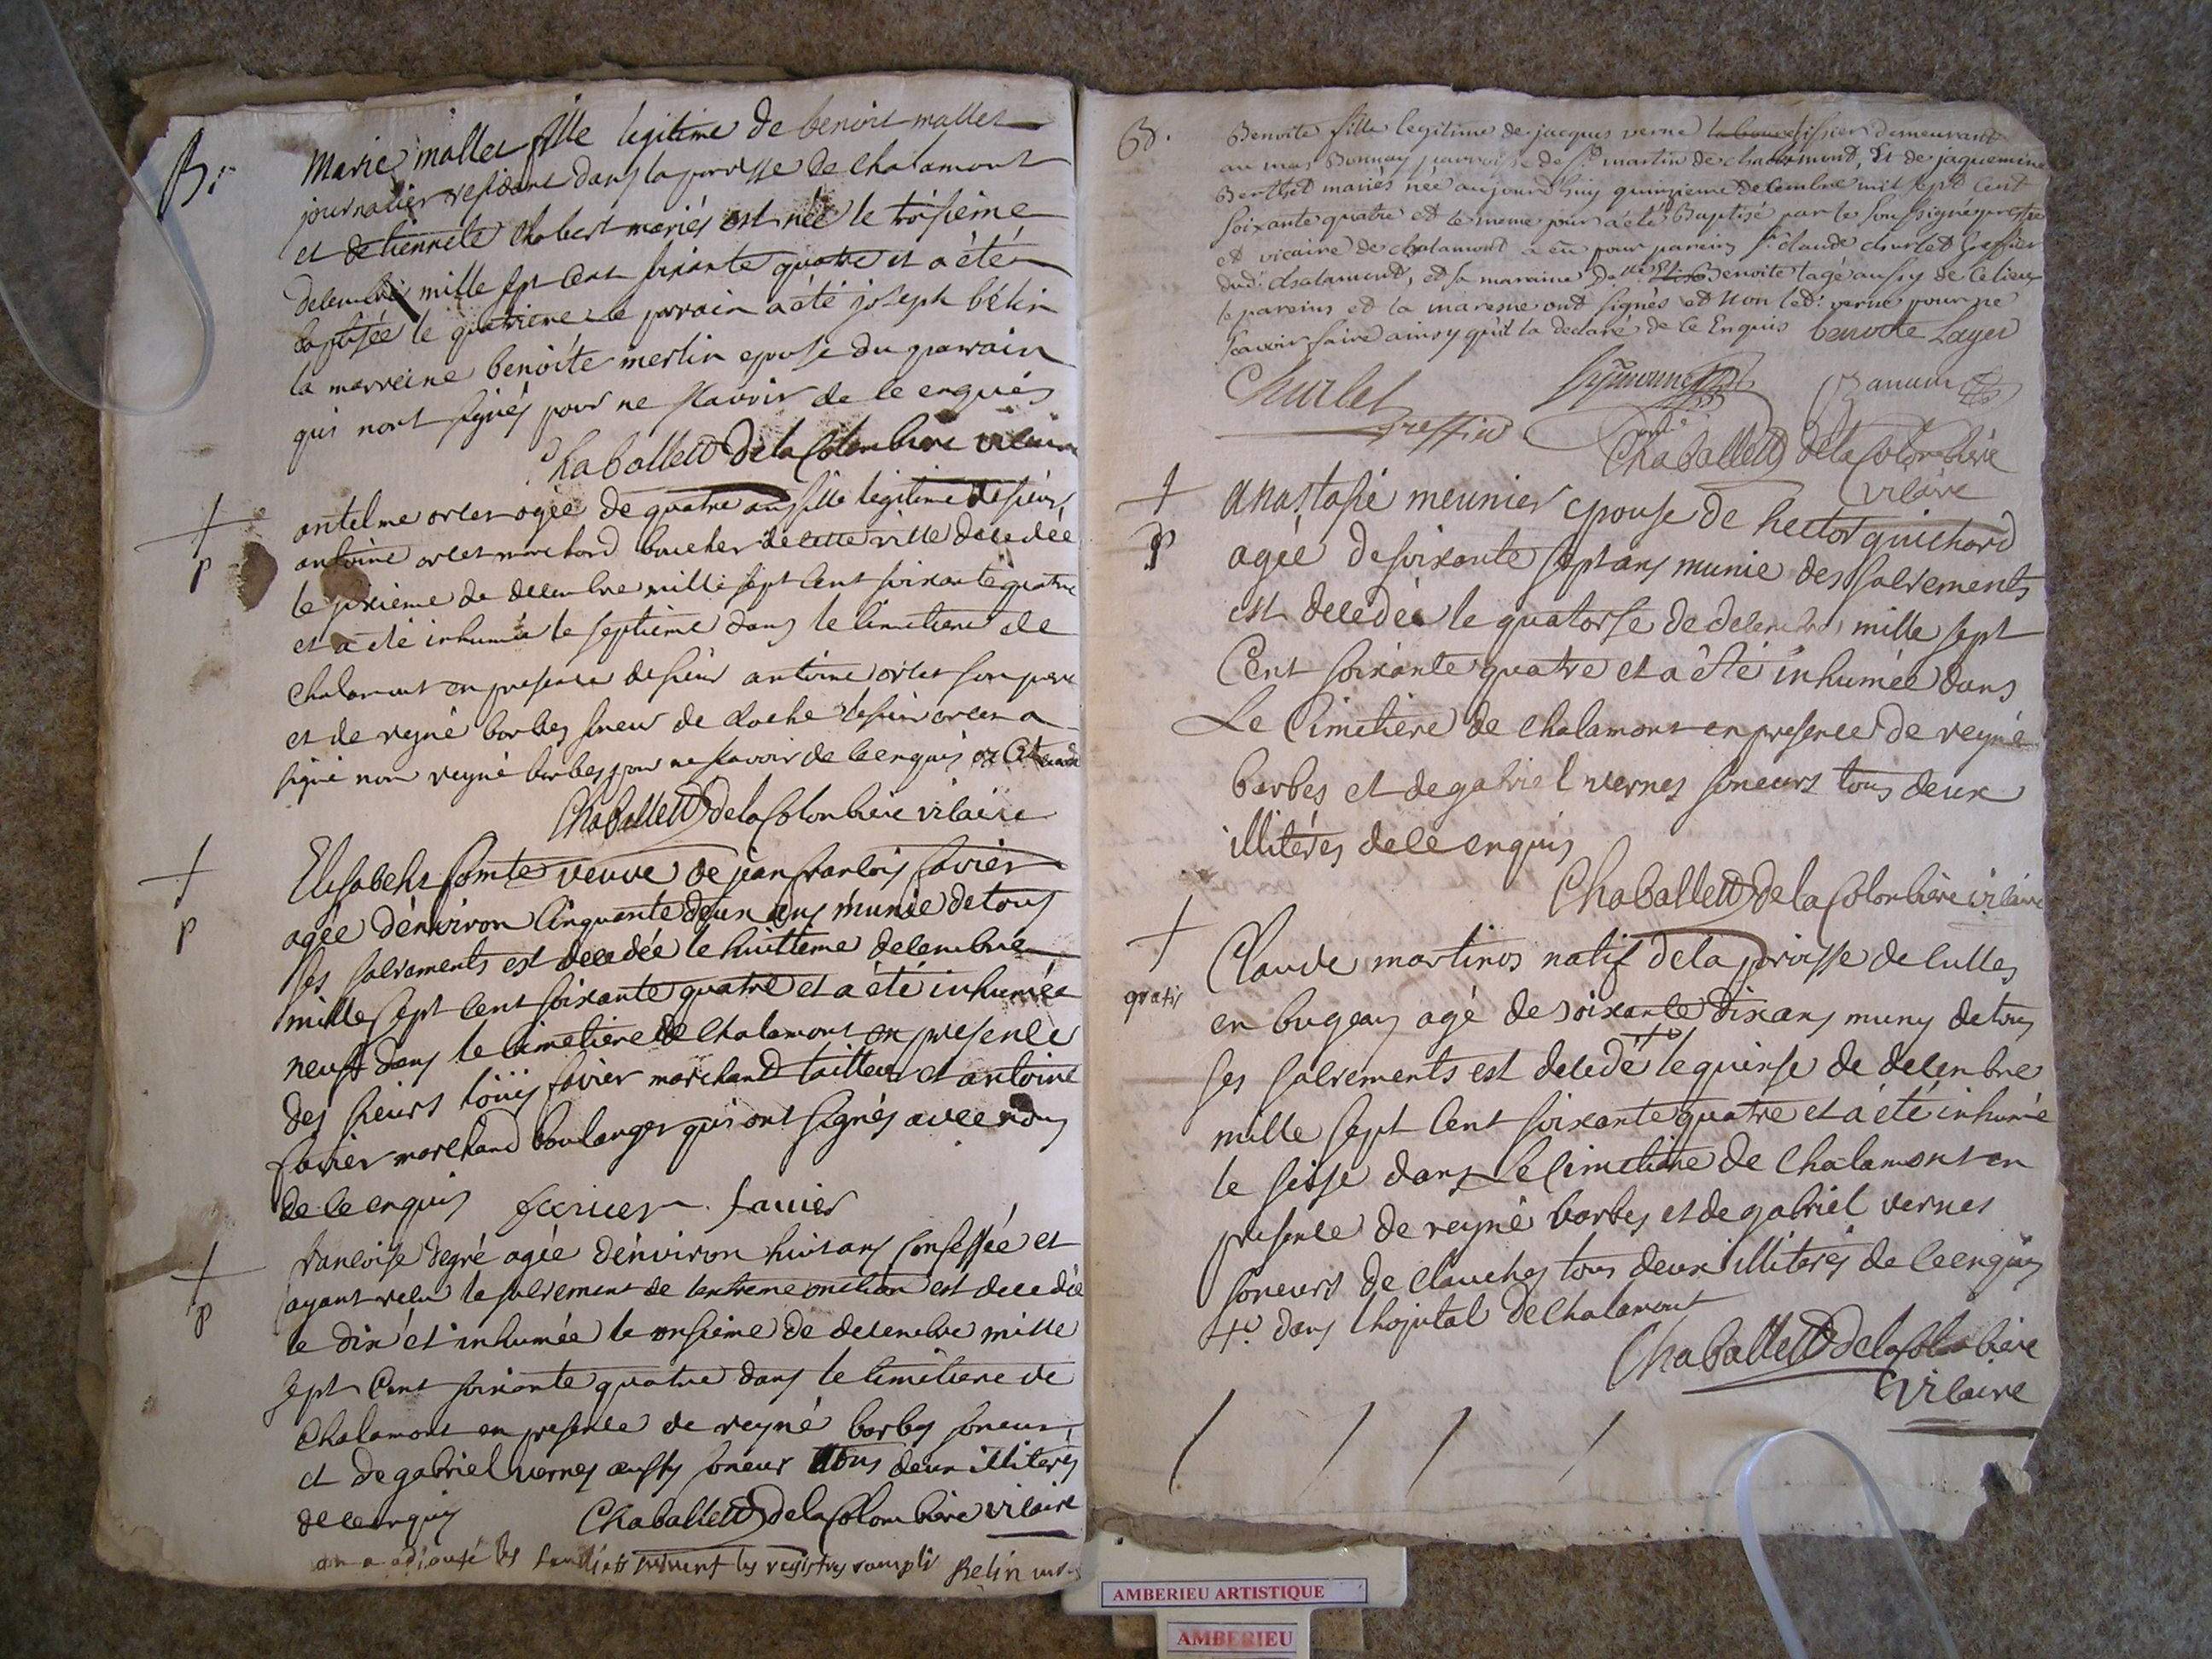 B.
Marie mallet fille legitime de benoit mallet
journalier residant dans la paroisse de chalamont
et detiennete chabert mariés est née le troisieme
decembre mille sept cent soixante quatre et a été
baptisée le quatrieme le parain a été joseph bélin
la marreine benoite merlin epouse du parrain
qui nont signés pour ne scavoir de ce enquis
Chaballett de la Colombiere vicaire
+
p
antelme orlet agée de quatre ans fille legitime de sieur
antoine orlet marchand boucher de cette ville decedée
le sixieme de decembre mille sept cent soixante quatre
et a été inhumée le septieme dans le cimetiere de
chalamont en presence de sieur antoine orlet son pere
et de reyné barbes soneur de cloche le sieur orlet a
signé non reyné barbes pour ne scavoir de ce enquis
Chaballett de la Colombiere vicaire
+
p
Elisabeht Comte veuve de jean francois favier
agée dénviron cinquante deux ans munie de tous
ses sacrements est decedée le huittieme decembre
mille sept cent soixante quatre et a été inhumée
neuf dans le cimetiere de chalamont en presence
des sieurs loüis favier marchand tailleur et antoine
favier marchand boulanger qui ont signés avec nous
de ce enquis favier favier
+
p
francoise degré agée dénviron huit ans confessée et
ayant recu le sacrement de lextreme onction est decedée
le dix et inhumée le onsieme de decembre mille
sept cent soixante quatre dans le cimetiere de
chalamont en presence de reyné barbes soneur
et de gabriel vernes aussy soneur tous deux illiterés
de ce enquis Chaballett de la Colombiere vicaire
on a adjouté les feuillets suivent les registres rempli
B.
Benoite fille legitime de jacques verne tissier demeurant
au mas Bonnay parroisse de St martin de chalamont, Et de jaquemine
Berthet mariés née aujourdhuy quinzieme decembre mil sept cent
soixante quatre et le meme jour a été Baptisé par le soussigné prestre
et vicaire de chalamont a eü pour parein Sr claude churlet greffier
dud. chalamont, et sa maraine Delle Benoite lagé aussy de ce lieu
le pareins et la maresne ont signés et non led. verne pour ne
scavoir faire ainsy qu'il la declaré de ce Enquis benoite Layer
Churlet
greffier
Chaballett de la Colombiere
vicaire
+
p
anastasie meunier epouse de hector guichard
agée de soixante sept ans munie des sacrements
est decedée le quatorse de decembre mille sept
Cent soixante quatre et a été inhumée dans
Le Cimetiere de chalamont en presence de reyné
barbes et de gabriel vernes soneurs tous deux
illiterés de ce enquis
Chaballett de la Colombiere vicaire
+
gratis
Claude martinos natif de la paroisse de lulles
en bugeay agé de soixante dix ans muny de tous
ses sacrements est decedé +o le quinse de decembre
mille sept cent soixante quatre et a été inhumé
le seise dans le cimetiere de chalamont en
presence de reyné barbes et de gabriel vernes
soneurs de clauches tous deux illiterés de ce enquis
+o dans lhopital de chalamont
Chaballett de la Colombiere
vicaire
AMBERIEU ARTISTIQUE
AMBERIEU